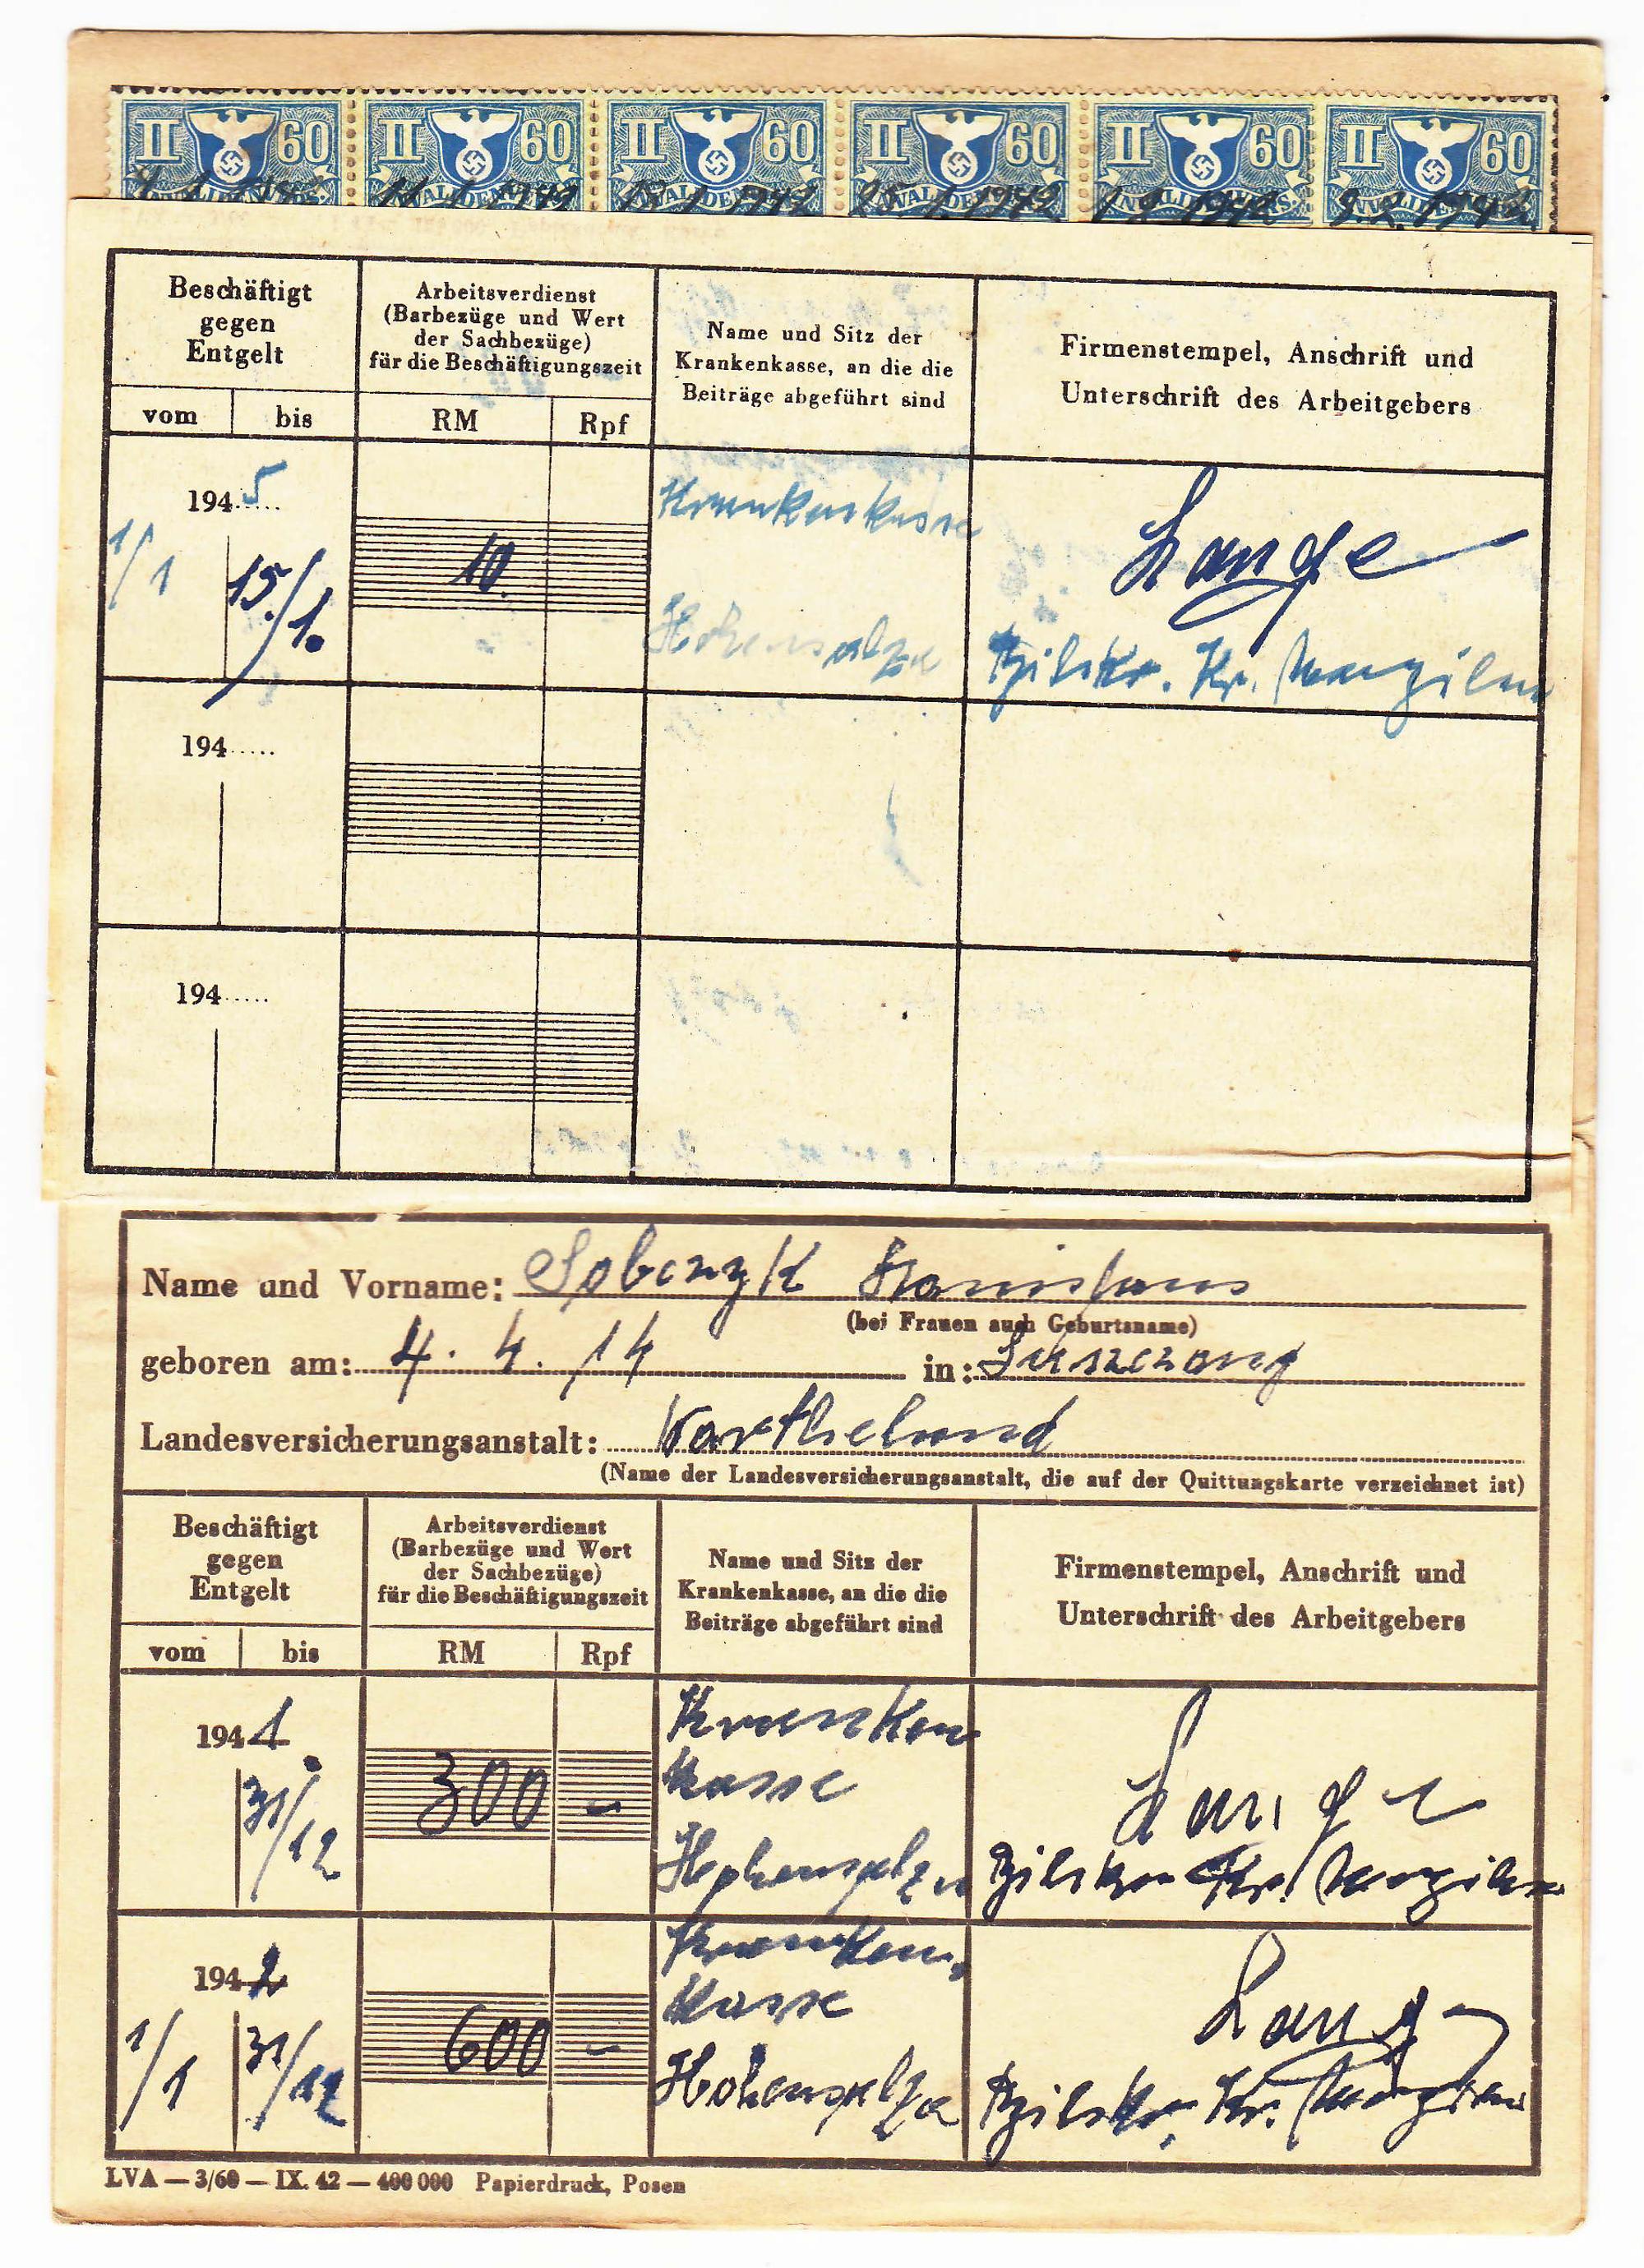 II 60 II 60 II 60 II 60 II 60 II 60
INVALIDENVERS.
11. 1. 1942 18. 1. 1942 25. 1. 1942 1. 2. 1942 8. 2. 1942
Beschäftigt
gegen
Entgelt
Arbeitsverdienst
(Barbezüge und Wert
der Sachbezüge)
für die Beschäftigungszeit
Name und Sitz der
Krankenkasse, an die die
Beiträge abgeführt sind
Firmenstempel, Anschrift und
Unterschrift des Arbeitgebers
vom bis RM Rpf
1945
1/1 15./1. 10.
Krankenkasse
Hohensalza
Lange
Kr.
194.....
194.....
Name und Vorname: Sobczyk Stanislaus
(bei Frauen auch Geburtsname)
geboren am: 4. 4. 14 in:
Landesversicherungsanstalt: Wartheland
(Name der Landesversicherungsanstalt, die auf der Quittungskarte verzeichnet ist)
Beschäftigt
gegen
Entgelt
Arbeitsverdienst
(Barbezüge und Wert
der Sachbezüge)
für die Beschäftigungszeit
Name und Sitz der
Krankenkasse, an die die
Beiträge abgeführt sind
Firmenstempel, Anschrift und
Unterschrift des Arbeitgebers
vom bis RM Rpf
1941.
31/12 300 -
Kranken
kasse
Hohensalza
Lange
Kr.
1942
1/1 31/12 600 -
Kranken
Kasse
Hohensalza
Lange
Kr.
LVA — 3/60 — IX. 42 — 400 000 Papierdruck, Posen